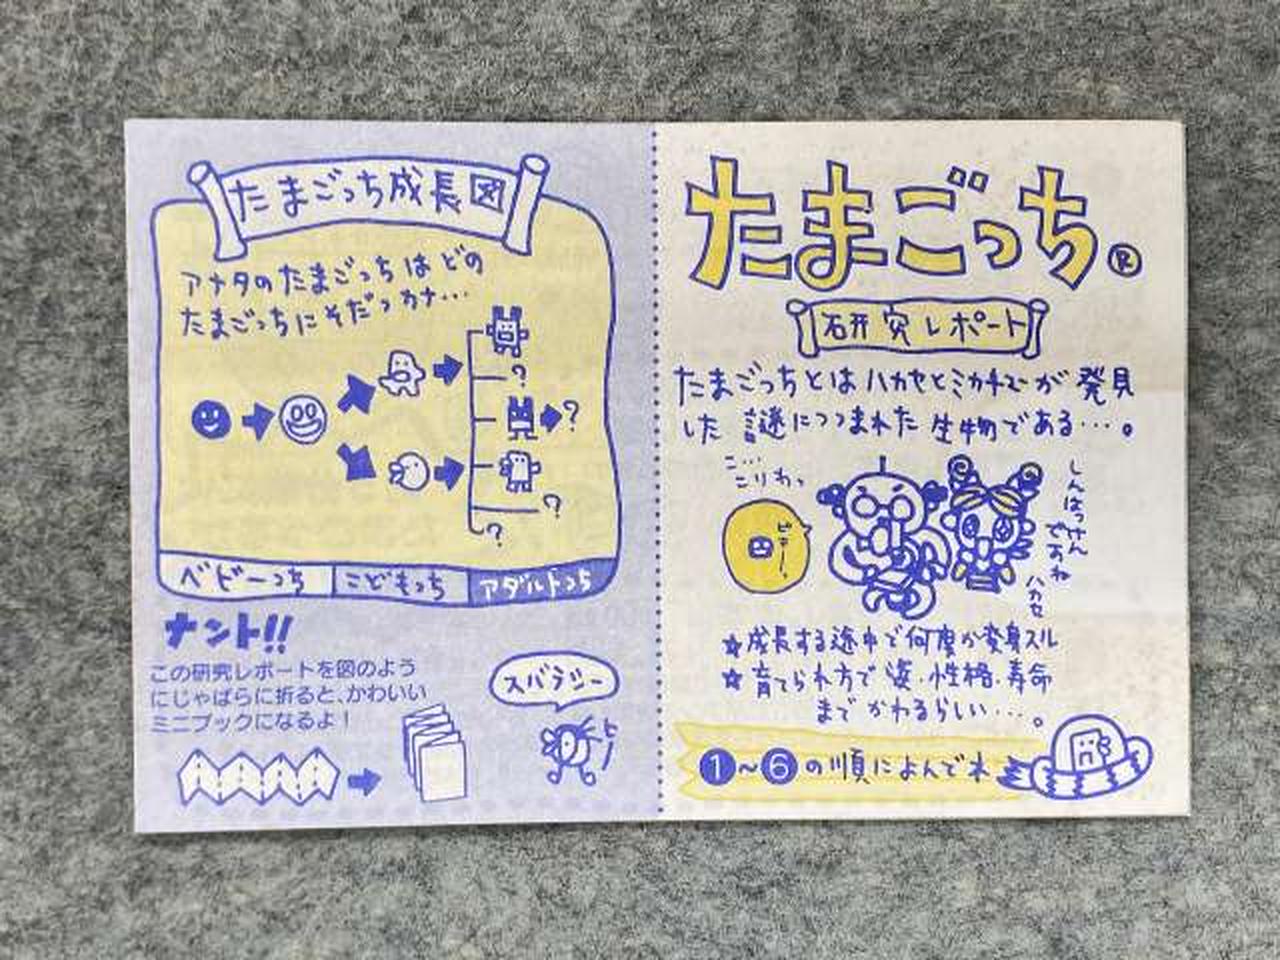 たまごっち成長図
アナタのたまごっちはどの
たまごっちにそだつカナ…
?
?
?
?
ベビーっち
こどもっち
アダルトっち
ナント!!
この研究レポートを図のよう
にじゃばらに折ると、かわいい
ミニブックになるよ!
スバラシー
ピー
たまごっち®
研究レポート
たまごっちとはハカセとミカチューが発見
した謎につつまれた生物である…。
こ…
こりわっ
ピキー!
しんはっけん
であね
ハカセ
★成長する途中で何度か変身スル
★育てられ方で姿・性格・寿命
までかわるらしい…。
1~6の順によんでネ